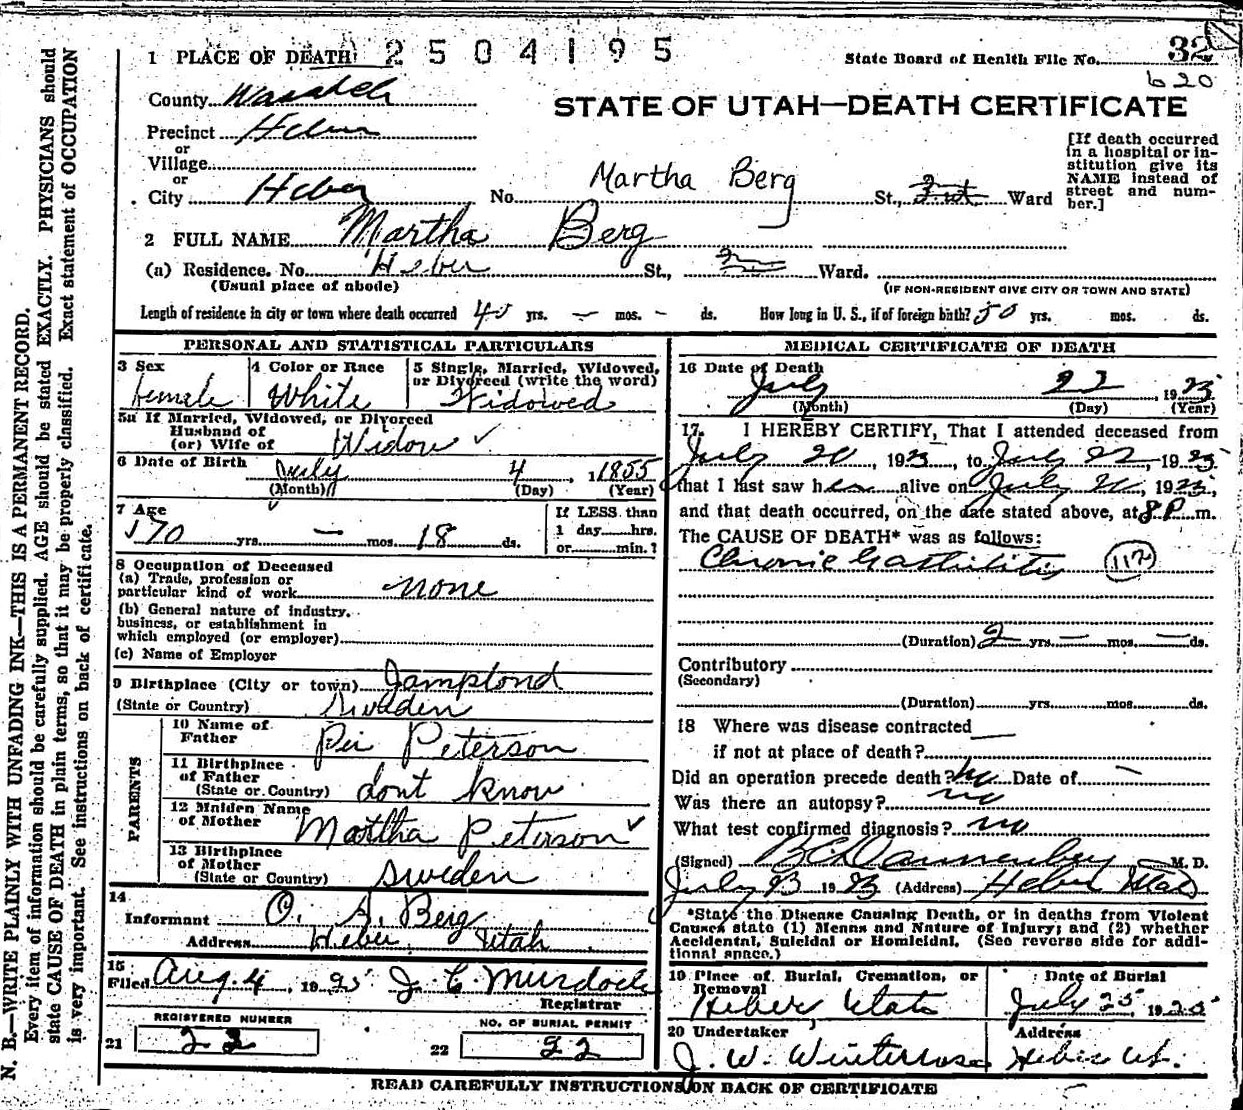 1 PLACE OF DEATH 2504195
State Board of Health File No. 32
620
County Wasatch
STATE OF UTAH—DEATH CERTIFICATE
Precinct Heber
or
Village
or
City Heber No. Martha Berg St., Ward
[If death occurred
in a hospital or in-
stitution give its
NAME instead of
street and num-
ber.]
2 FULL NAME Martha Berg
(a) Residence. No. Heber St., Ward.
(Usual place of abode) (IF NON-RESIDENT GIVE CITY OR TOWN AND STATE)
Length of residence in city or town where death occurred 40 yrs. — mos. - ds. How long in U. S., if of foreign birth? 50 yrs. mos. ds.
PERSONAL AND STATISTICAL PARTICULARS
3 Sex 4 Color or Race 5 Single, Married, Widowed,
or Divorced (write the word)
female White Widowed
5a If Married, Widowed, or Divorced
Husband of
(or) Wife of Widow ✓
6 Date of Birth July 4, 1855
(Month) (Day) (Year)
7 Age If LESS than
70 yrs. — mos. 18 ds. 1 day hrs.
or min.?
8 Occupation of Deceased
(a) Trade, profession or
particular kind of work none
(b) General nature of industry.
business, or establishment in
which employed (or employer)
(c) Name of Employer
9 Birthplace (City or town) Jamptond
(State or Country) Sweden
PARENTS
10 Name of
Father Per Peterson
11 Birthplace
of Father
(State or Country) dont know
12 Maiden Name
of Mother Martha Peterson ✓
13 Birthplace
of Mother
(State or Country) Sweden
14
Informant O. A. Berg
Address Heber, Utah
15
Filed Aug. 4, 1925 J C Murdock
Registrar
REGISTERED NUMBER NO. OF BURIAL PERMIT
21 22 22 22
MEDICAL CERTIFICATE OF DEATH
16 Date of Death
July 22, 1925
(Month) (Day) (Year)
17. I HEREBY CERTIFY, That I attended deceased from
July 20, 1925, to July 22, 1925
that I last saw her alive on July, 1925,
and that death occurred, on the date stated above, at 8 P m.
The CAUSE OF DEATH* was as follows:
Chronic Gastritis 112
(Duration) 2 yrs. — mos. — ds.
Contributory
(Secondary)
(Duration) yrs. mos. ds.
18 Where was disease contracted
if not at place of death?
Did an operation precede death? no Date of —
Was there an autopsy? no
What test confirmed diagnosis? no
(Signed) M. D.
July 23 1925 (Address) Heber Utah
*State the Disease Causing Death, or in deaths from Violent
Causes state (1) Means and Nature of Injury; and (2) whether
Accidental, Suicidal or Homicidal. (See reverse side for addi-
tional space.)
19 Place of Burial, Cremation, or Date of Burial
Removal
Heber Utah July 25, 1925
20 Undertaker Address
J. W. Winterrose Heber Ut.
READ CAREFULLY INSTRUCTIONS ON BACK OF CERTIFICATE
N. B.—WRITE PLAINLY WITH UNFADING INK—THIS IS A PERMANENT RECORD.
Every item of information should be carefully supplied. AGE should be stated EXACTLY. PHYSICIANS should
state CAUSE OF DEATH in plain terms, so that it may be properly classified. Exact statement of OCCUPATION
is very important. See instructions on back of certificate.